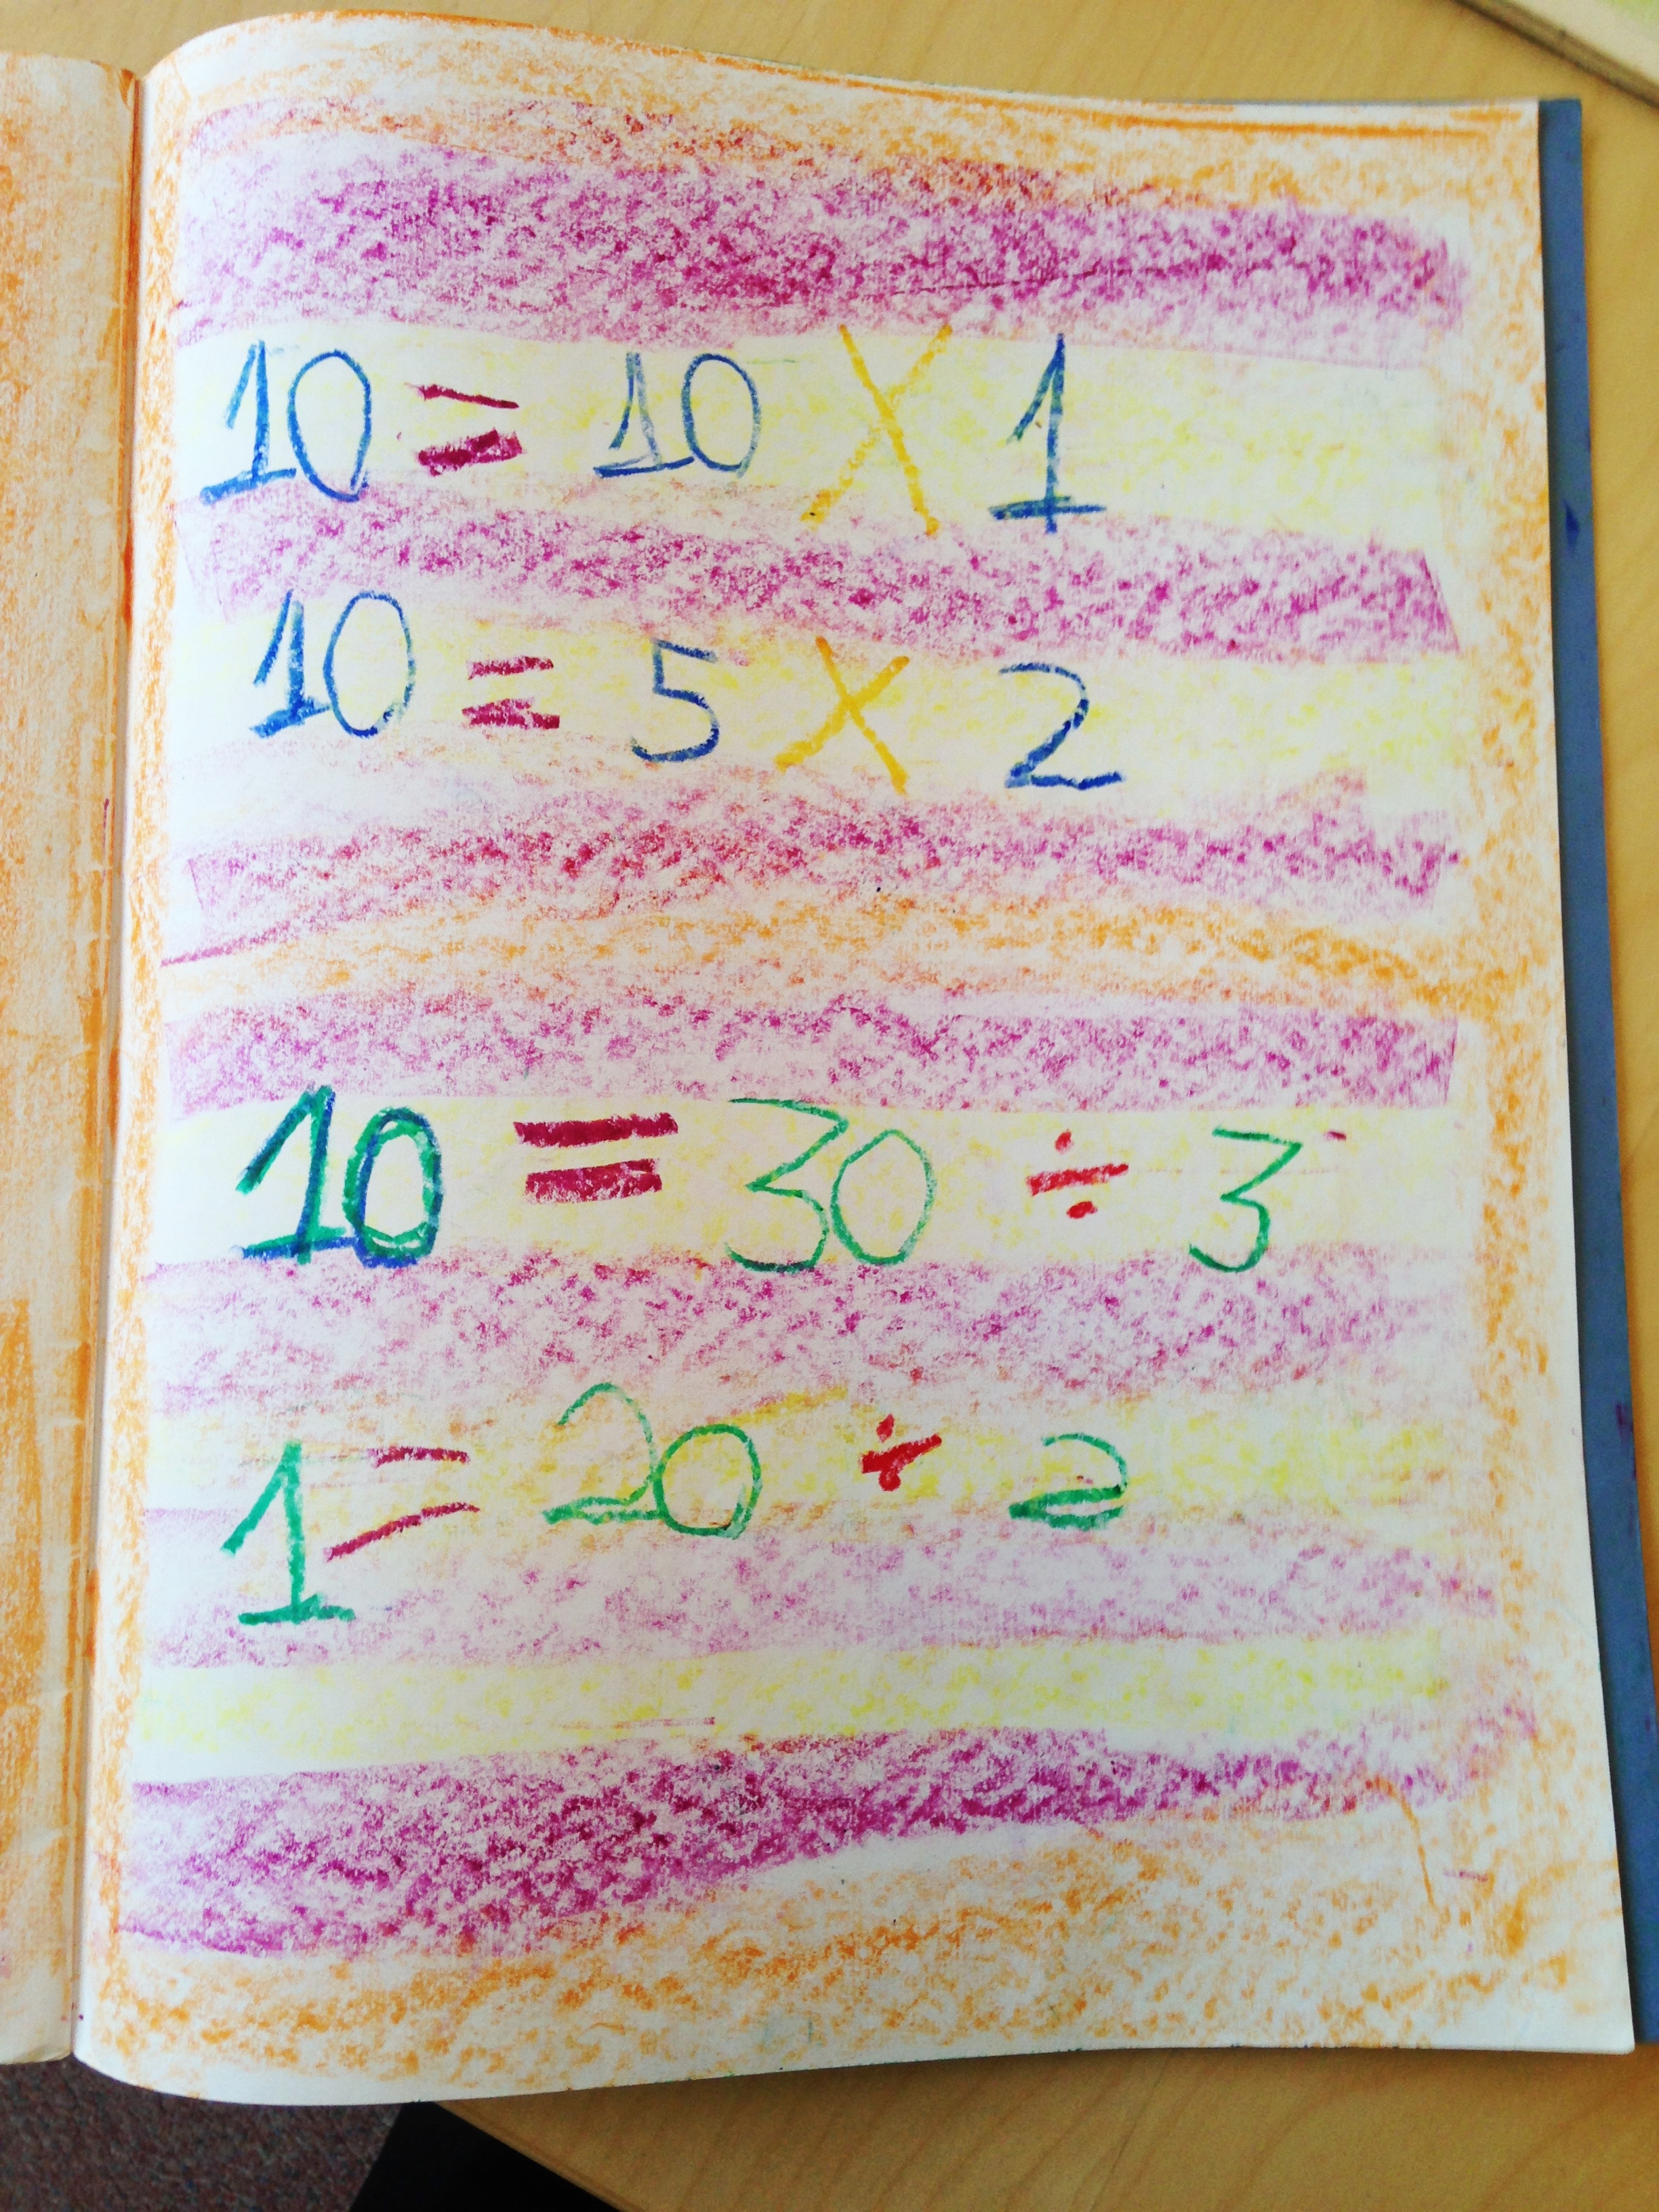 10 = 10 X 1
10 = 5 X 2
10 = 30 ÷ 3
1 = 20 ÷ 2